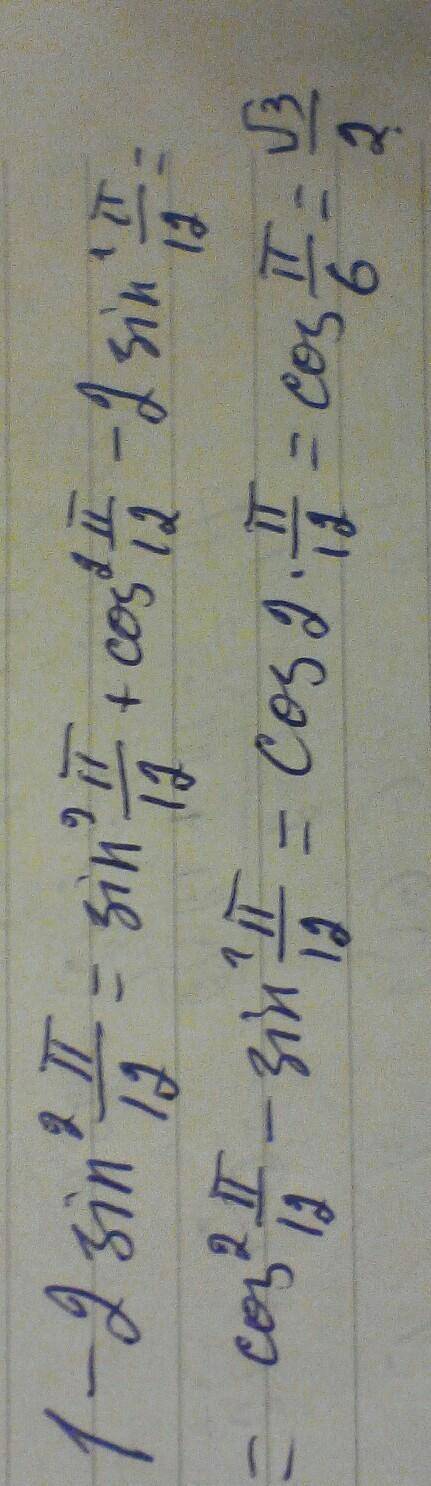 1 - 2 sin² π/12 = sin² π/12 + cos² π/12 - 2 sin² π/12 =
= cos² π/12 - sin² π/12 = cos 2 · π/12 = cos π/6 = √3/2